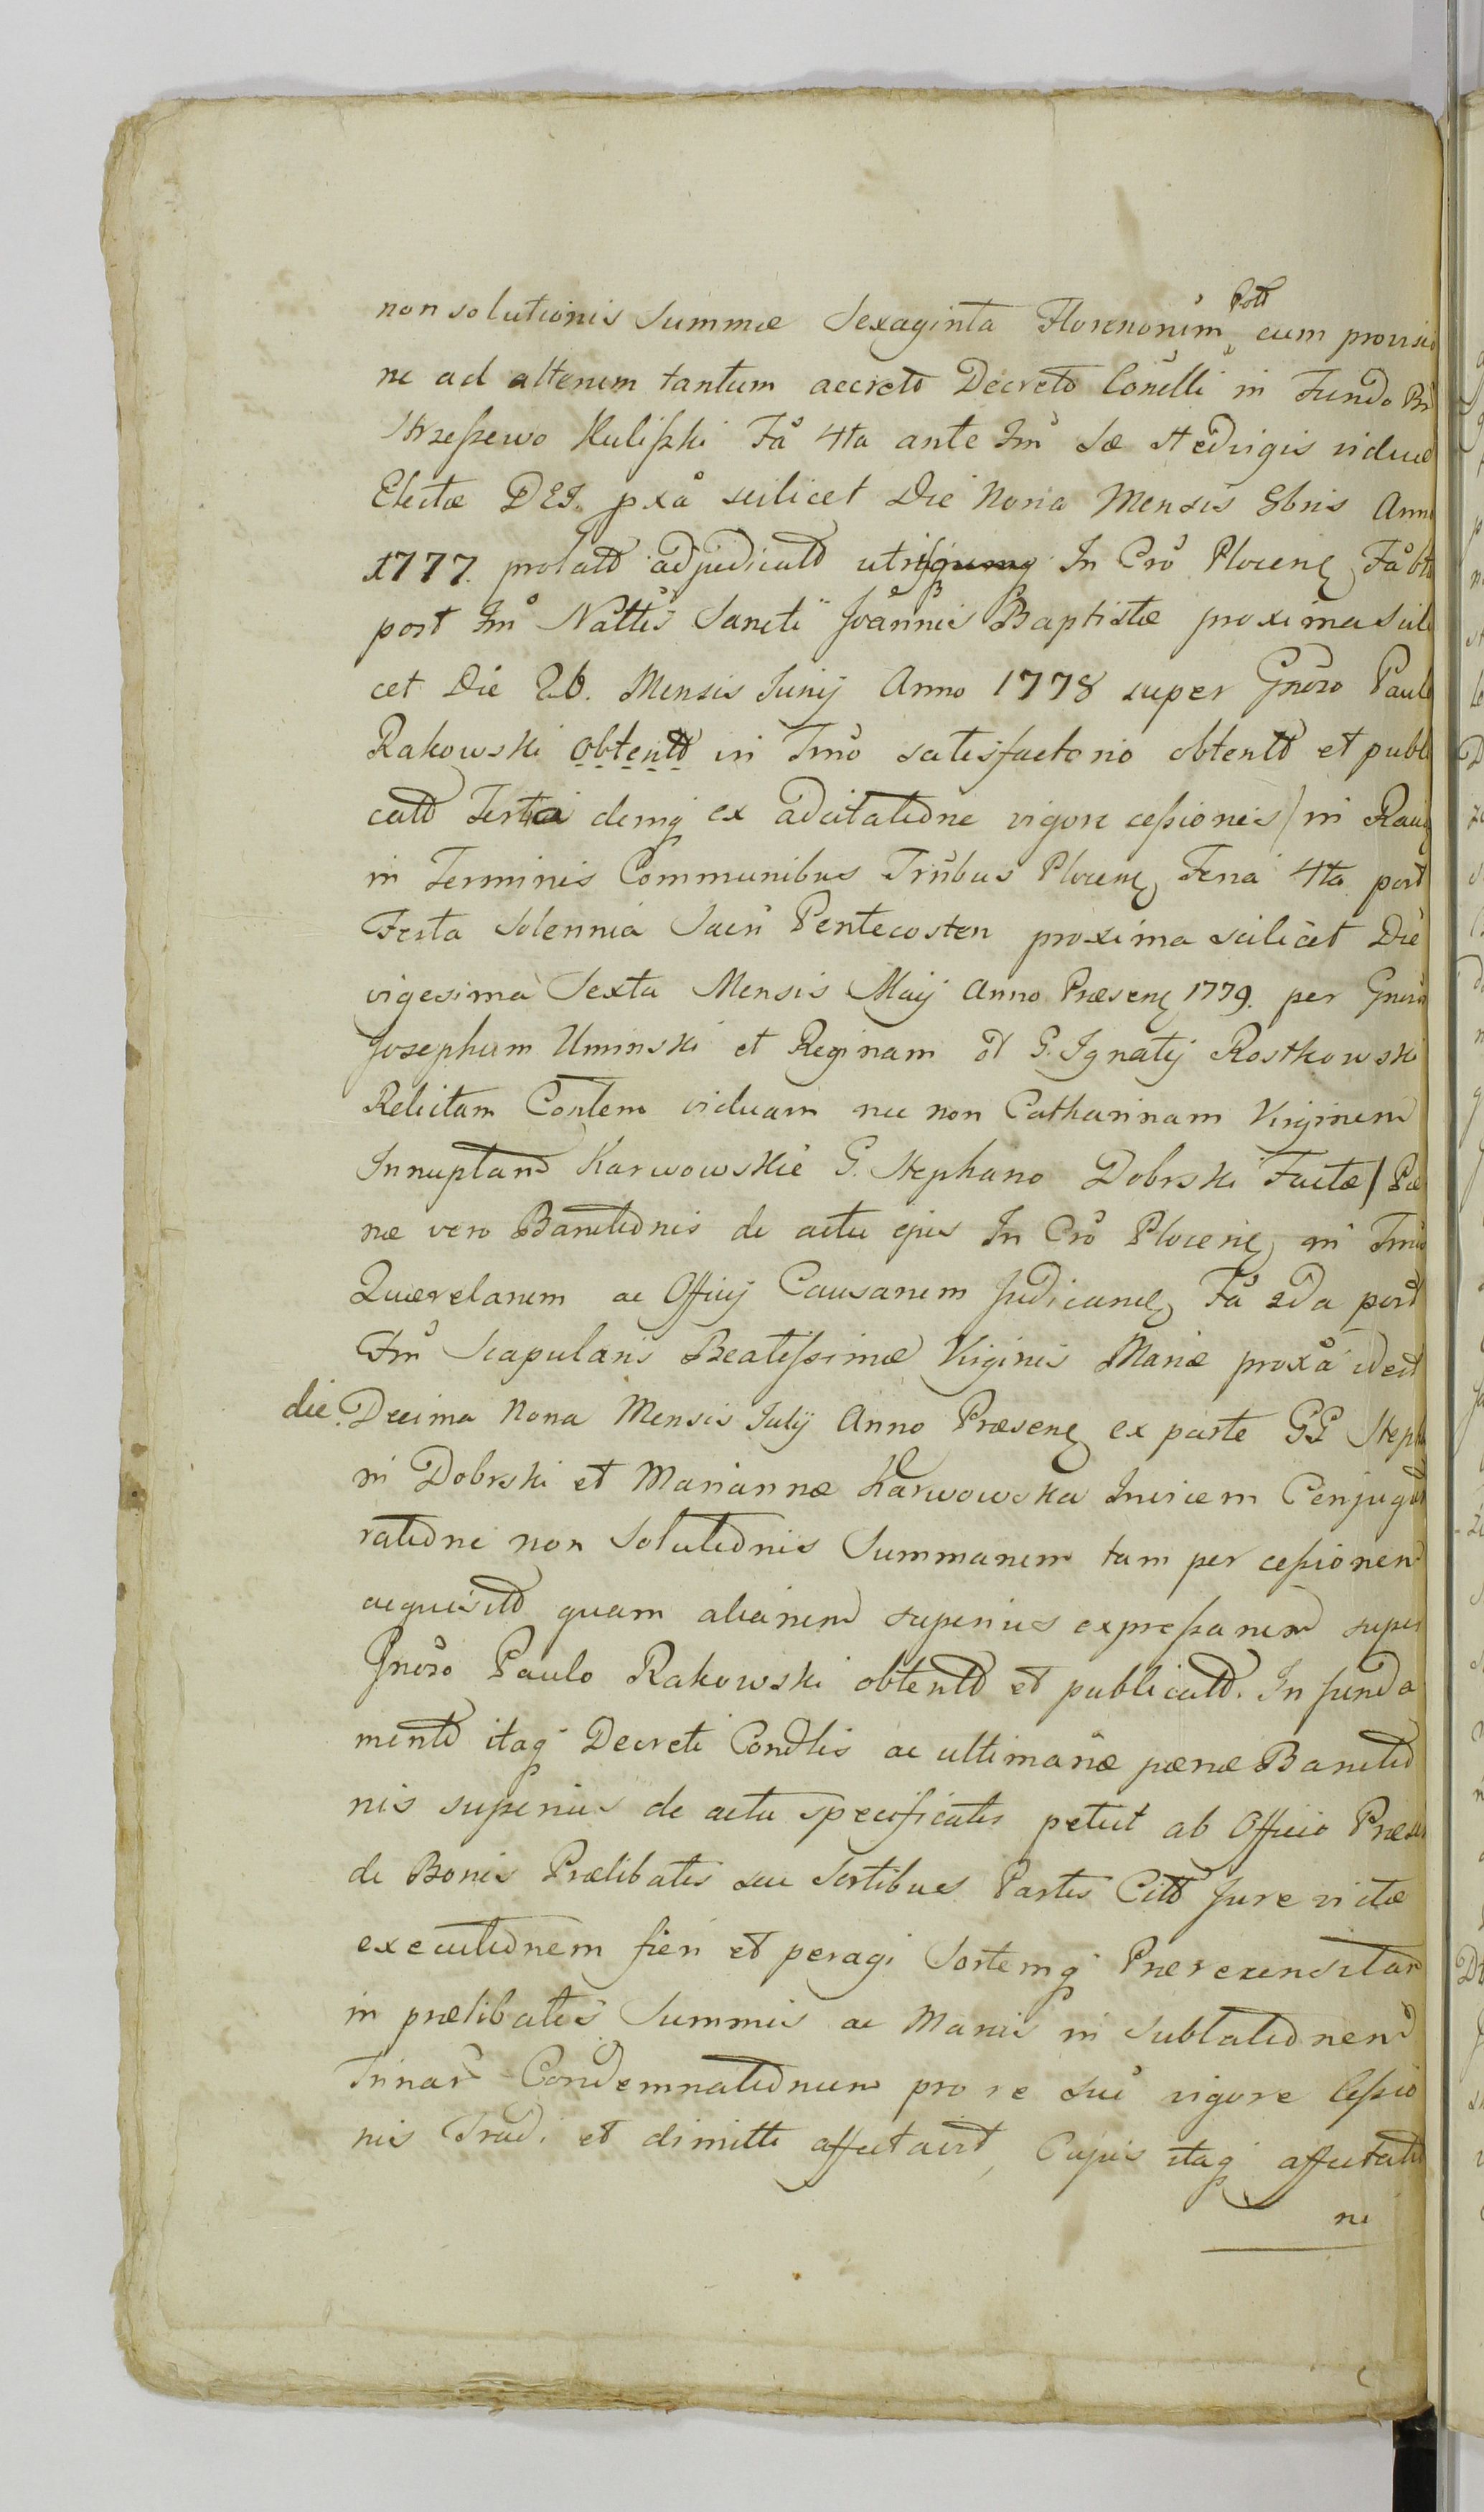 non solutionis Summæ Sexaginta Florenorum Poll cum provisio
ne ad alterum tantum accreto Decreto Conđlli in Fundo Bñ
Strzeszewo Kuliszki Fã 4ta ante Fm̃ Sæ Hedvigis viduæ
Electæ DEI. pxã scilicet Die Nona Mensis 8bris Anno
1777. prolato adjudicato utriusq In Crõ Plocenȩ Fã 6ta
post Fm̃ Nattis Sancti Joannis Baptistæ proxima scili
cet Die 26. Mensis Junij Anno 1778 super Gnõso Paulo
Rakowski obtento in Tmõ satisfactorio obtento et publi
cato Tertia demq ex adcitatione vigore cessionis / in Rawȩ
in Terminis Communibus Trnlibus Plocenȩ Feria 4ta post
Festa Solennia Sacri Pentecosten proxima scilicet Die
vigesima Sexta Mensis Maij Anno Præsenȩ 1779. per Gnrsũ
Josephum Uminski et Reginam ol G. Ignatij Rostkowski
Relictam Contem viduam nec non Catharinam Virginem
Innuptam Karwowskie G. Stephano Dobrski Factæ / Pæ
næ vero Banitionis de actu ejus In Crõ Plocenȩ in Tmis
Querelarum ac Officij Causarum Judicanȩ Fã 2da post
Fm̃ Scapularis Beatissimæ Virginis Mariæ proxã idest
die. Decima Nona Mensis Julij Anno Præsenȩ ex parte GG Stepha
ni Dobrski et Mariannæ Karwowska Invicem Conjugum
ratione non Solutionis Summarum tam per cessionem
acquisito quam aliarum superius expressarum super
Gnõso Paulo Rakowski obtento et publicato. In funda
mento itaq Decreti Condlis ac ultimariæ pænæ Banitio
nis superius de actu specificatis petiit ab Officio Præsen
de Bonis Prælibatis seu Sortibus Partis Citõ Jure victæ
executionem fieri et peragi Sortemq Præreensitam
in prælibatis Summis ac Marcis in Sublationem
Trinar Condemnationum pro re sua vigore Cessio
nis Tradi et dimitti affectavit, Cujus itaq affectatio
ni